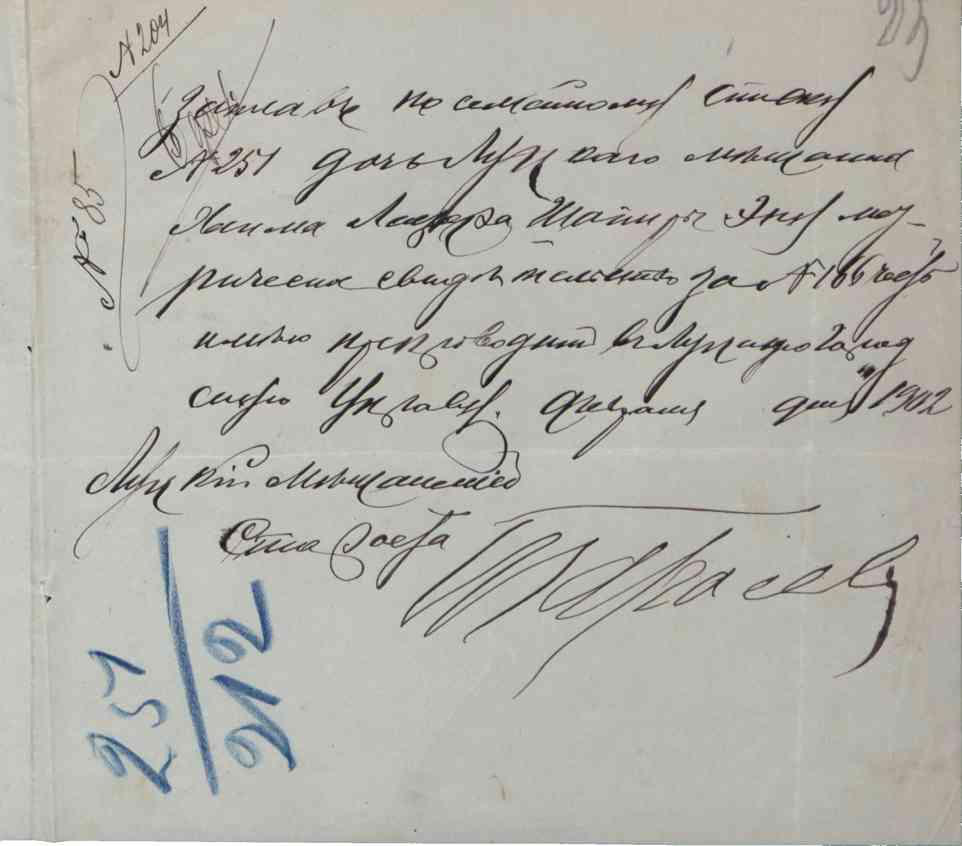 25
№ 204
№ 85
Записавъ по семейному списку
№ 251 дочь Луцкаго мѣщанина
Хаима Лейзера Шапиры Энту мет-
рическое свидѣтельство за № 166 честь
имѣю препроводить въ Луцкую Город
скую Управу. Февраля дня 1902
Луцкій Мѣщанскій
Староста
257
212